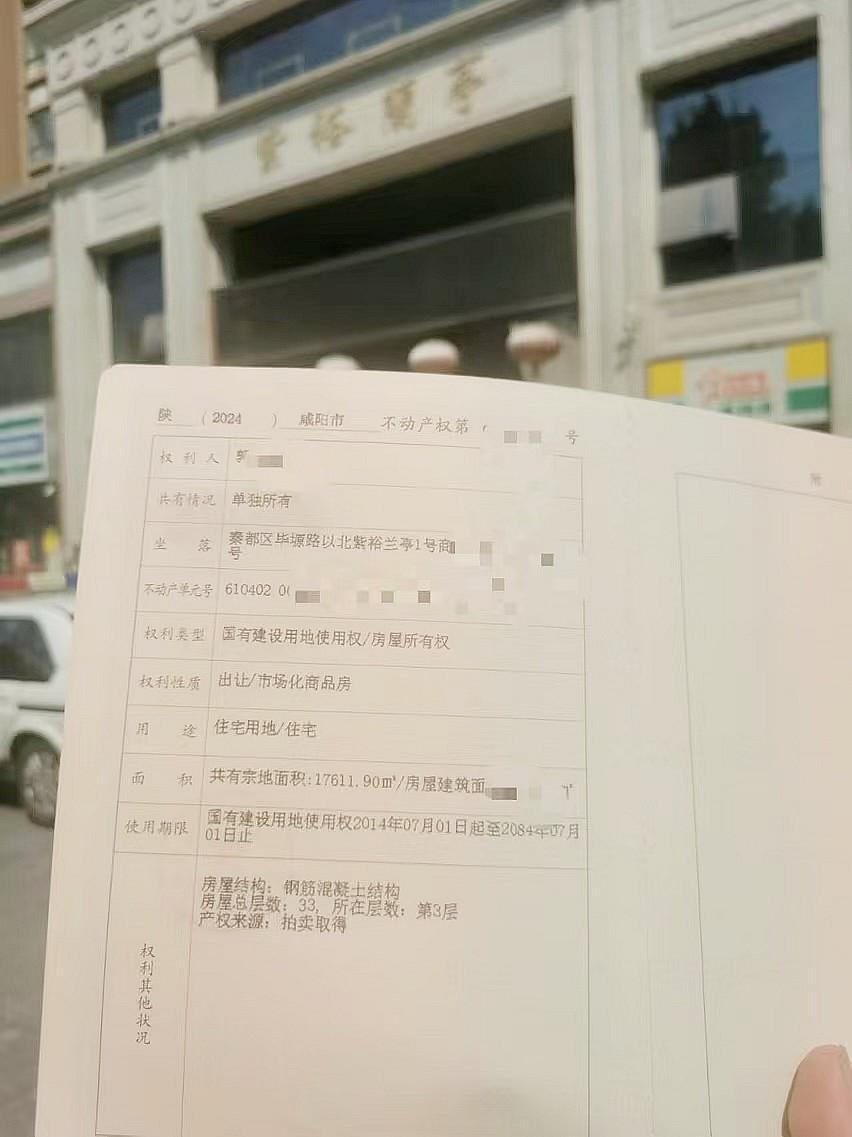 紫裕蘭亭
陕 (2024) 咸阳市 不动产权第 号
附
权利人 郭
共有情况 单独所有
坐落 秦都区毕塬路以北紫裕兰亭1号商
号
不动产单元号 610402 00
权利类型 国有建设用地使用权/房屋所有权
权利性质 出让/市场化商品房
用途 住宅用地/住宅
面积 共有宗地面积:17611.90㎡/房屋建筑面
使用期限 国有建设用地使用权2014年07月01日起至2084年07月
01日止
权利其他状况
房屋结构：钢筋混凝土结构
房屋总层数：33, 所在层数：第3层
产权来源：拍卖取得